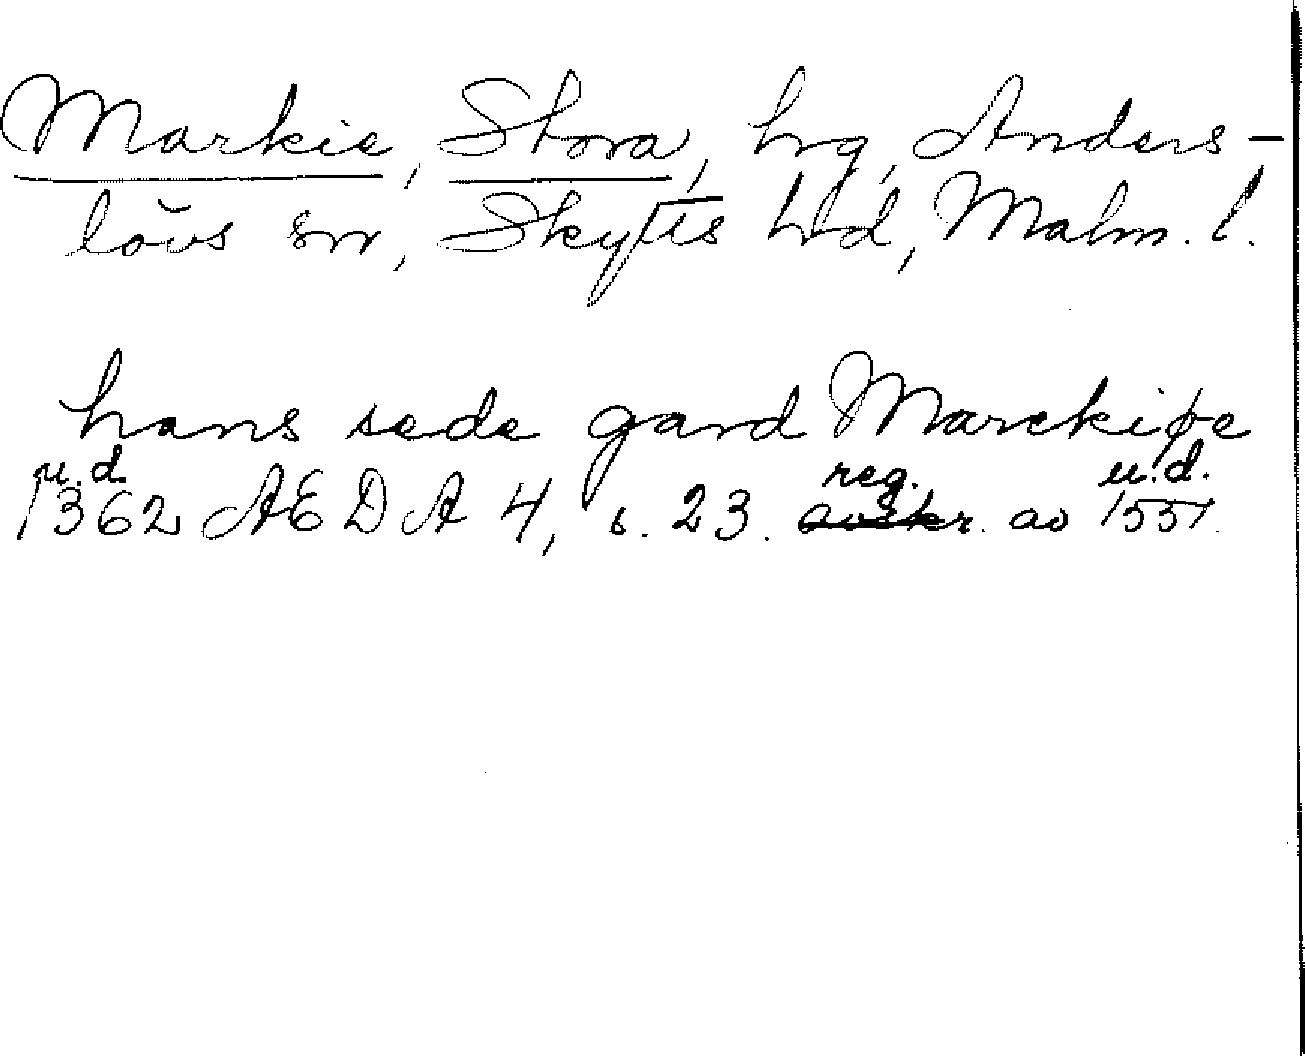 Markie, Stora, hrg, Anders-
lövs sn, Skytts hd, Malm. l.
hans sede gard Marckiþe
u.d. reg. u.d.
1362 AEDA 4, s. 23. avskr. av 1551.